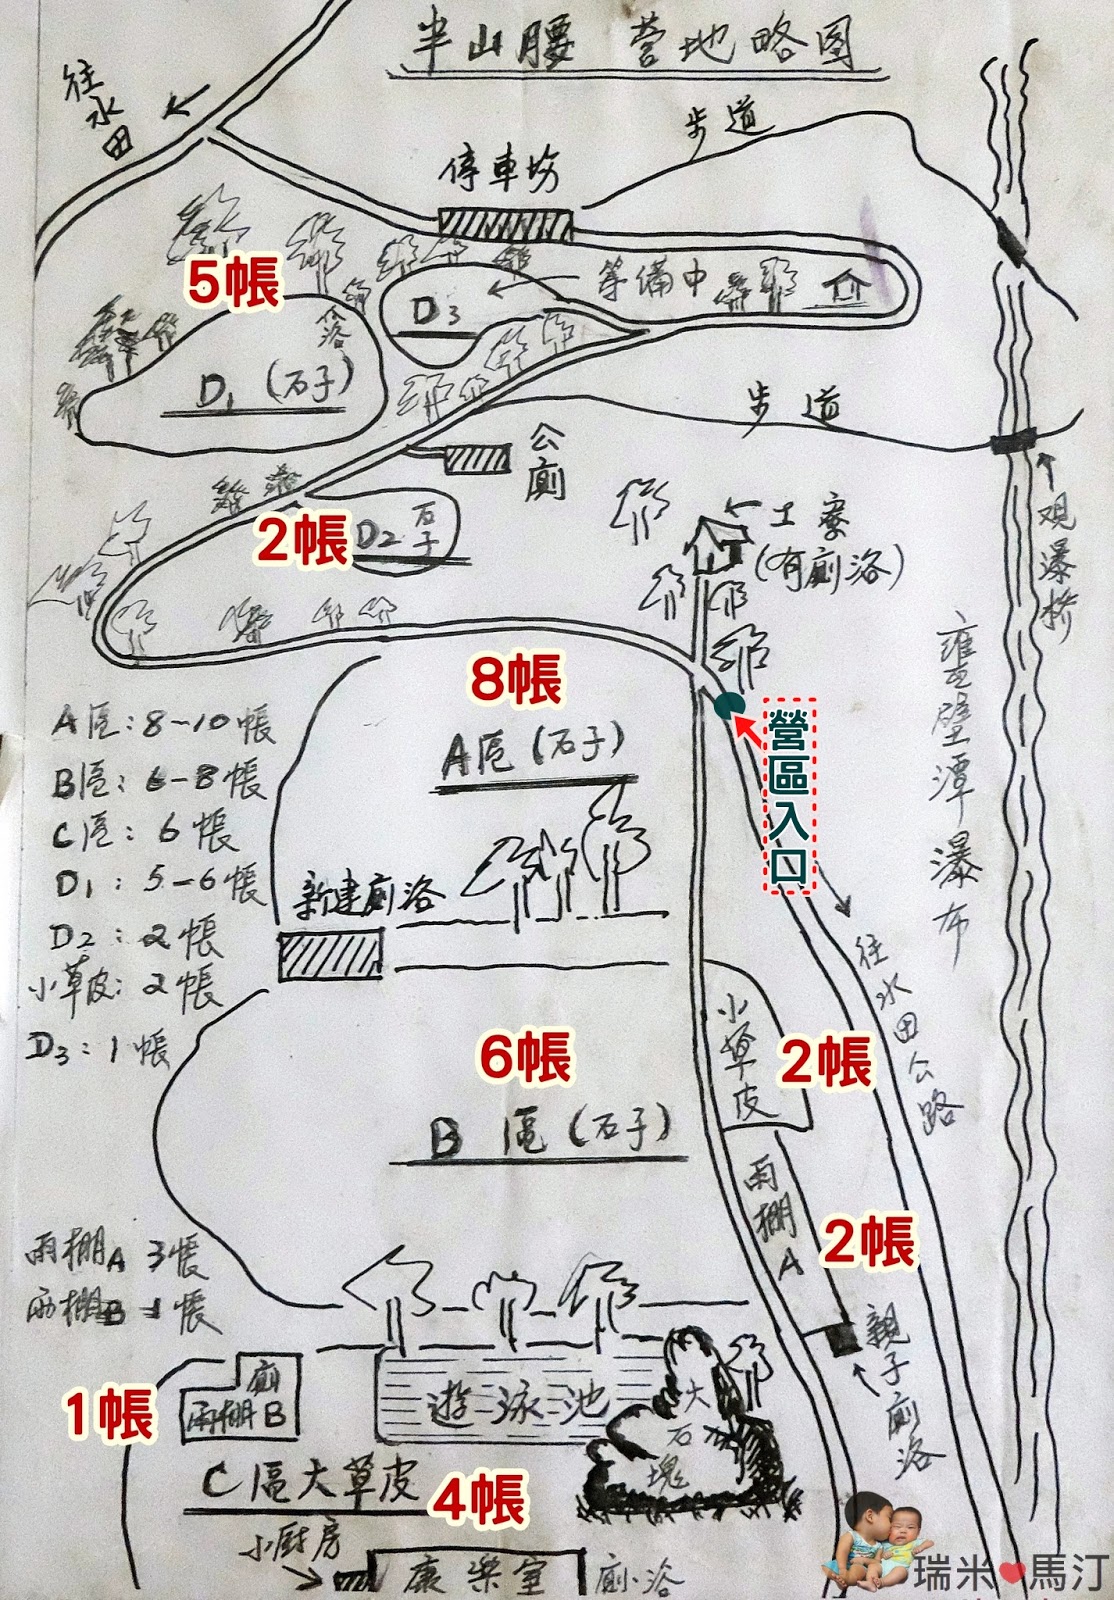 半山腰 营地略图
往水田
步道
停車場
5帳
D3
筹備中
D1 (石子)
步道
公廁
2帳
D2 石子
工寮
(有廁浴)
观瀑桥
8帳
A區 (石子)
營區入口
壁潭瀑布
A區:8~10帳
B區:6-8帳
C區:6帳
D1:5-6帳
D2:2帳
小草皮:2帳
D3:1帳
新建廁浴
往水田公路
小草皮
2帳
6帳
B 區 (石子)
雨棚A
2帳
雨棚A 3帳
雨棚B 1帳
親子廁浴
1帳
廁
雨棚B
遊泳池
大石塊
C區大草皮
4帳
小厨房
康樂室
廁浴
瑞米❤馬汀